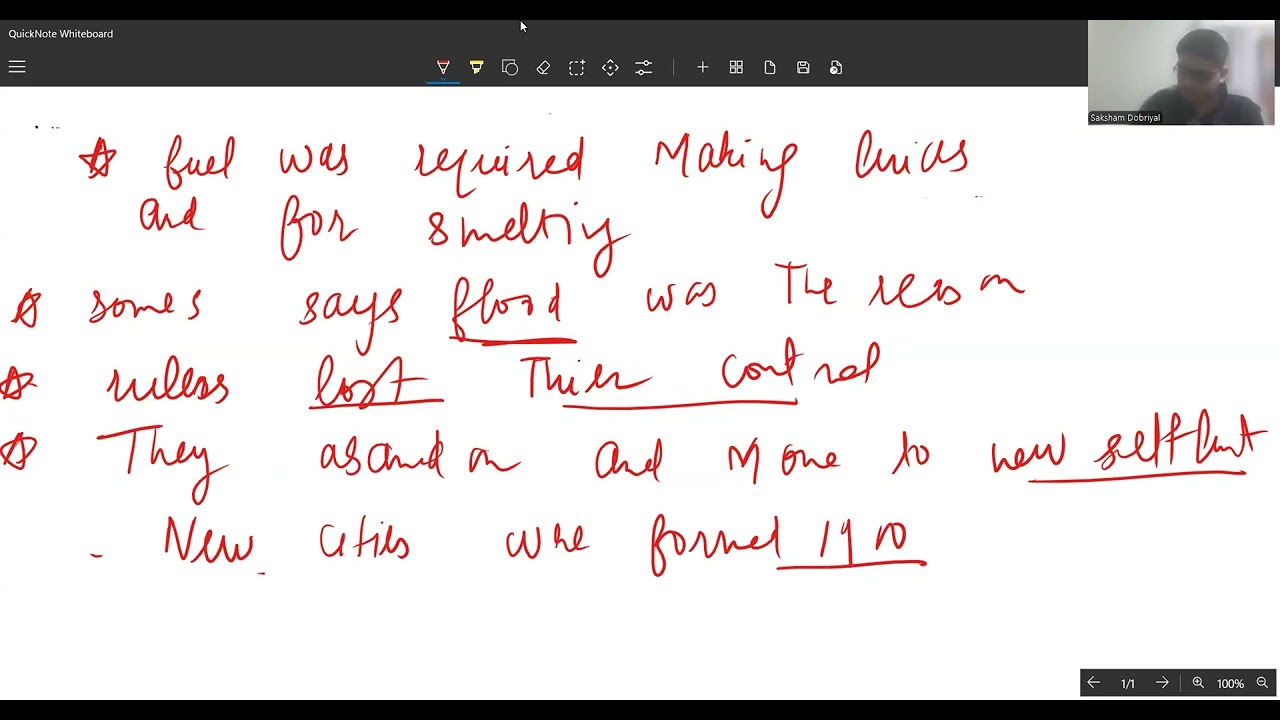 QuickNote Whiteboard
Saksham Dobriyal
☆ fuel was required Making bricks
and for smelting
☆ somes says flood was The reson
☆ rulers lost Thier control
☆ They abandon and Move to new settlment
- New cities were formed 1900
1/1 100%